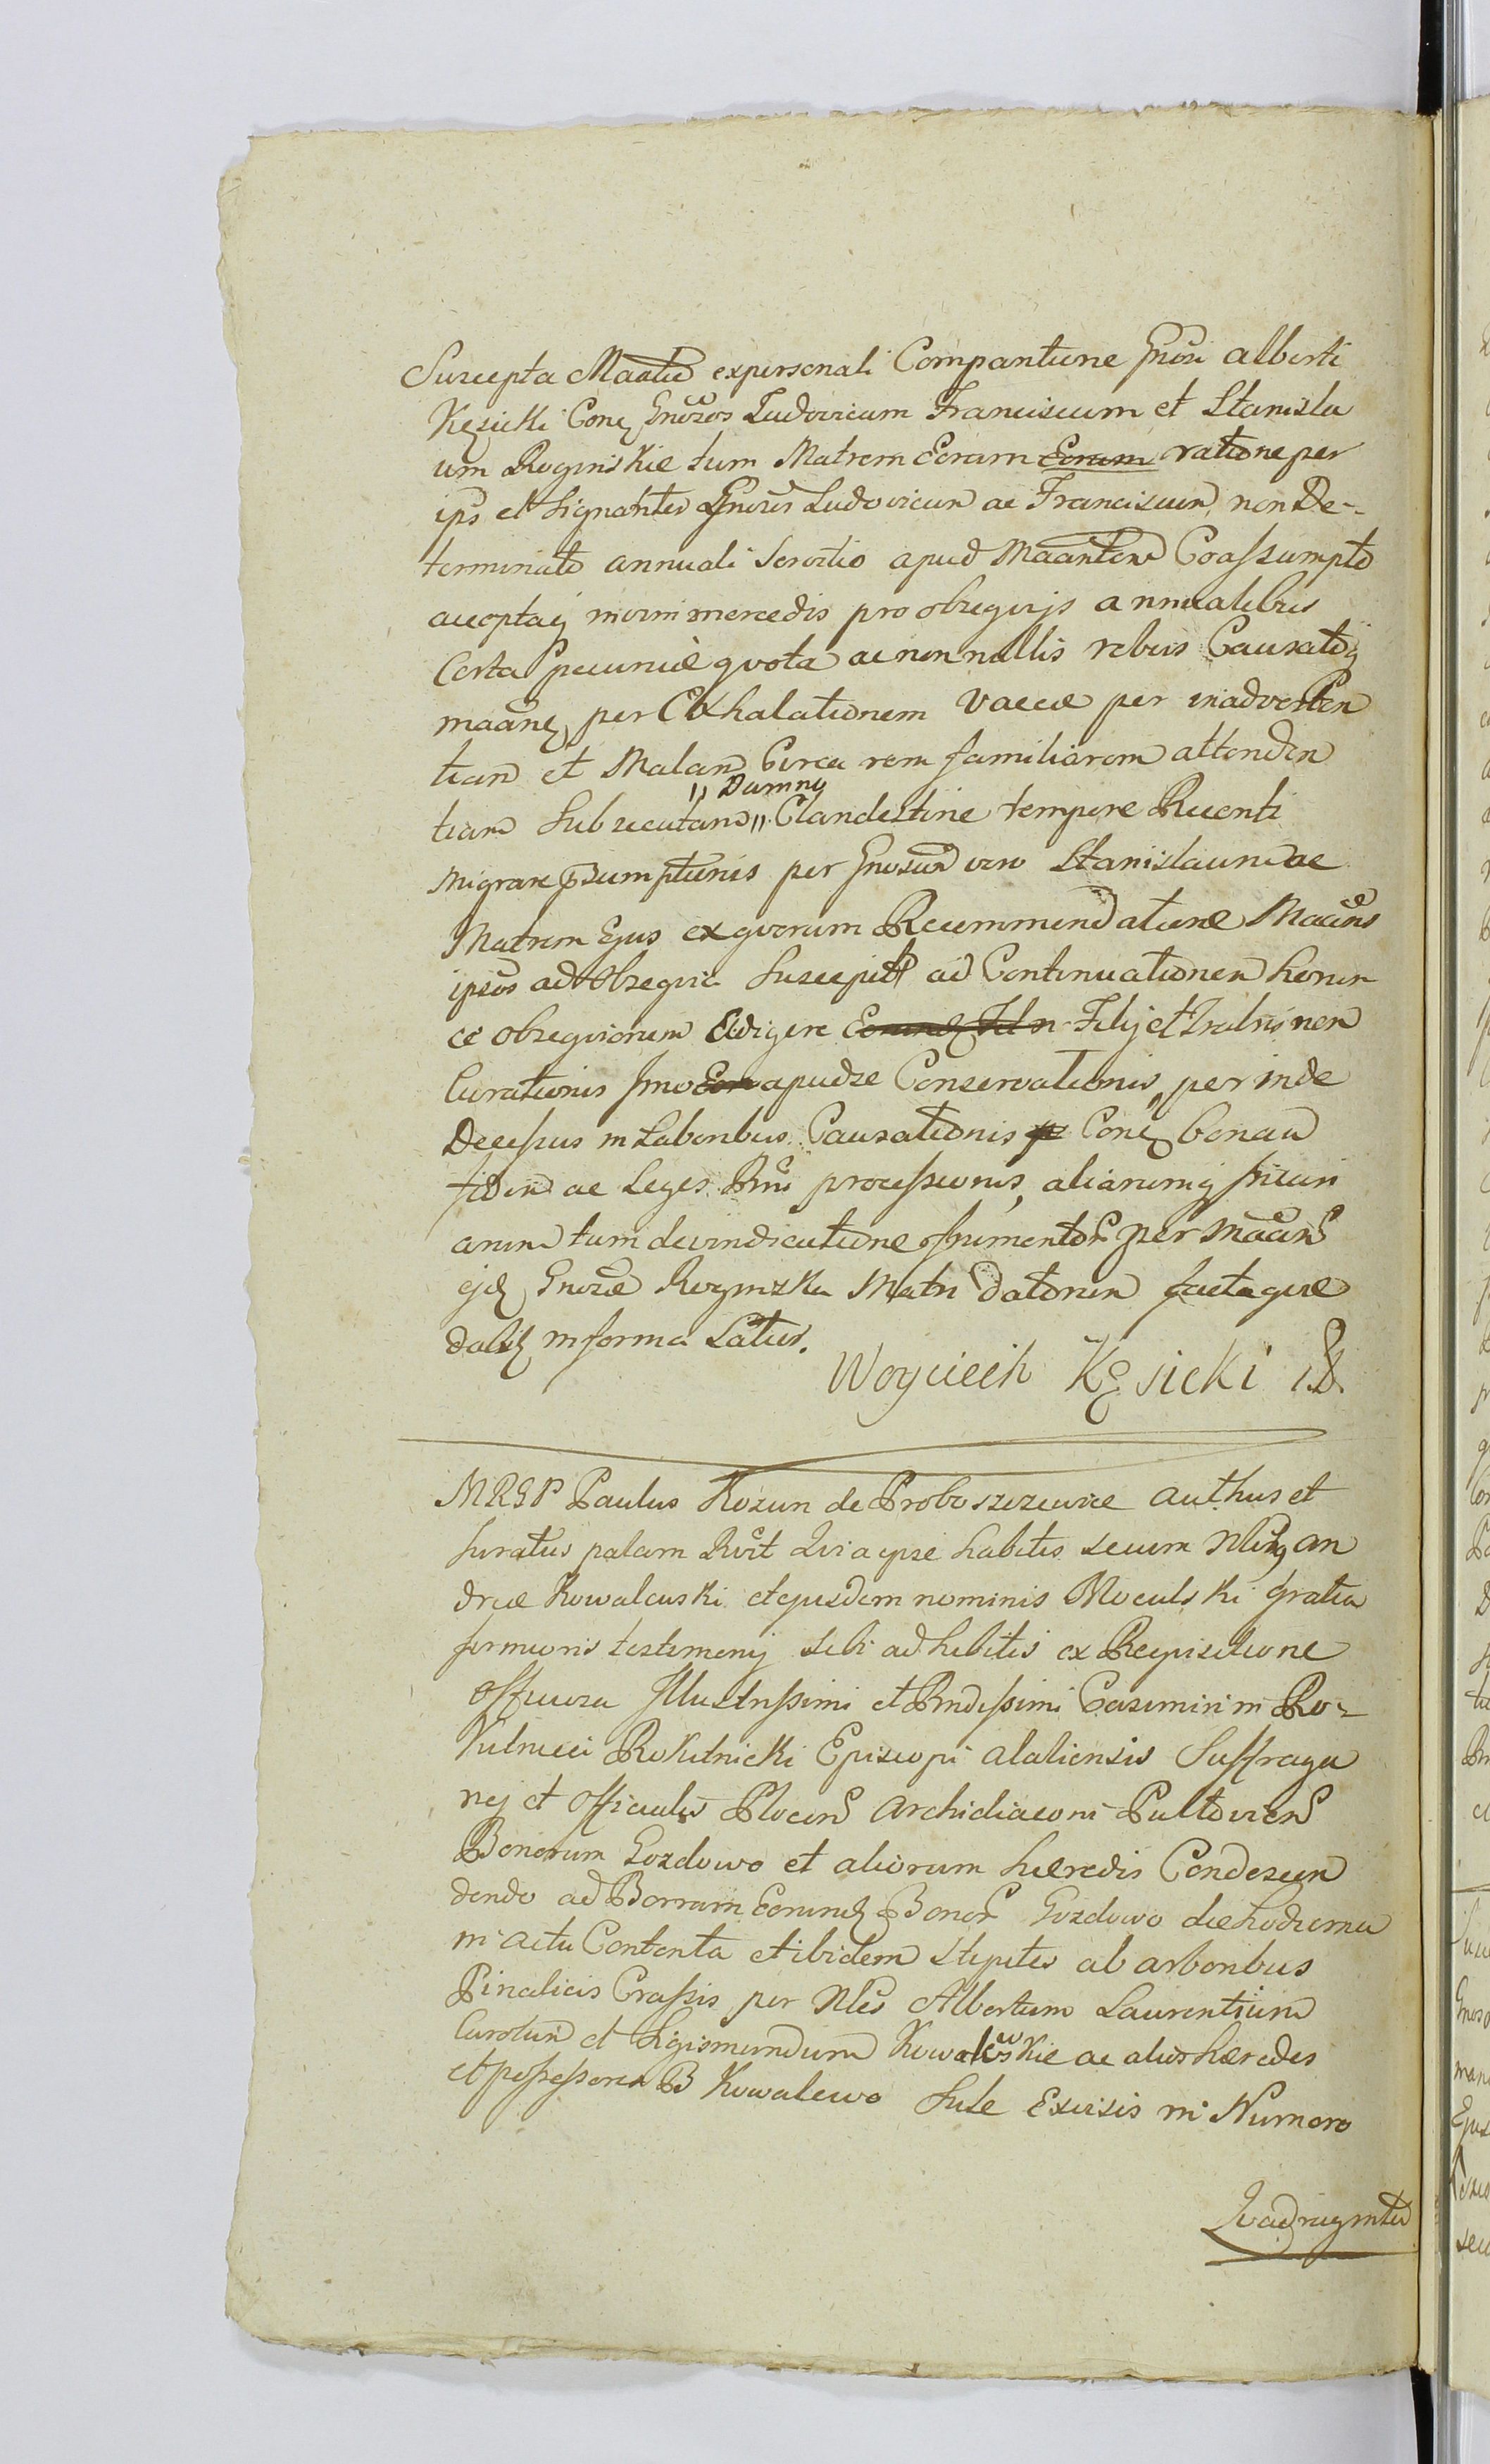 Suscepta Maatio expersonali Compantione Gnosi alberti
Kęsicki Conę Gnosos Ludovicum Franciscum et Stanisla
um Roginskie tum Matrem Eoram Eorum ratione per
ips et Signanter Gnosos Ludovicum ac Franciscum, non De-
terminato annuali Servitio apud Maantem Coassumpto
acceptaq mercedis pro obsequijs annualibus
Certa pecuniæ quota ac non nullis rebus Causatoq
maanę per Exhalationem vaccæ per inadverten
tiam et Malam Circa rem familiarem attenden
tiam Subsecutam " Damno " Clandestine tempore Recenti
Migrare præsumptionis per Gnosum vero Stanislaum ac
Matrem Ejus ex quorum Recommendatione Maans
ipsos ad Obsequia Suscepit ad Continuationem horum
ce obsequiorum Adigere Filij et Fratris non
Curationis Imo apud se Conservationis, per inde
Decessus in Laboribus Causationis Conę bonam
fidem ac Leges Rni processionis, aliarumq
arum tum devindicatione frumentor per Maans
ejd Gnosæ Roginska Matri datorum factaque
in forma Latius.
Woyciech Kęsicki
MRGP Paulus Kozun de Proboszczewice authus et
Juratus palam Rvit Qvia ipse habitis secum Nlibq An
dreæ Kowalewski et ejusdem nominis Moculski gratia
formioris testimonij sibi adhibitis ex Reqvisitione
officiosa Illustrissimi et Rndissimi Casimiri in Ro-
kitnica Rokitnicki Episcopi alaliensis Suffraga
nej et Officialis Plocens Archidiaconi Pultoviens
Bonorum Gozdowo et aliorum hæredis Condescen
dendo ad Borram Eorund Bonor Gozdowo die hodierna
in actu Contenta et ibidem Stipites ab arboribus
Pinalicis Crassis per Nles Albertum Laurentium
Carolum et Sigismundum Kowalewskie ac alios hæredes
et possessores B Kowalewo Sule Excisis in Numero
Qvadraginta